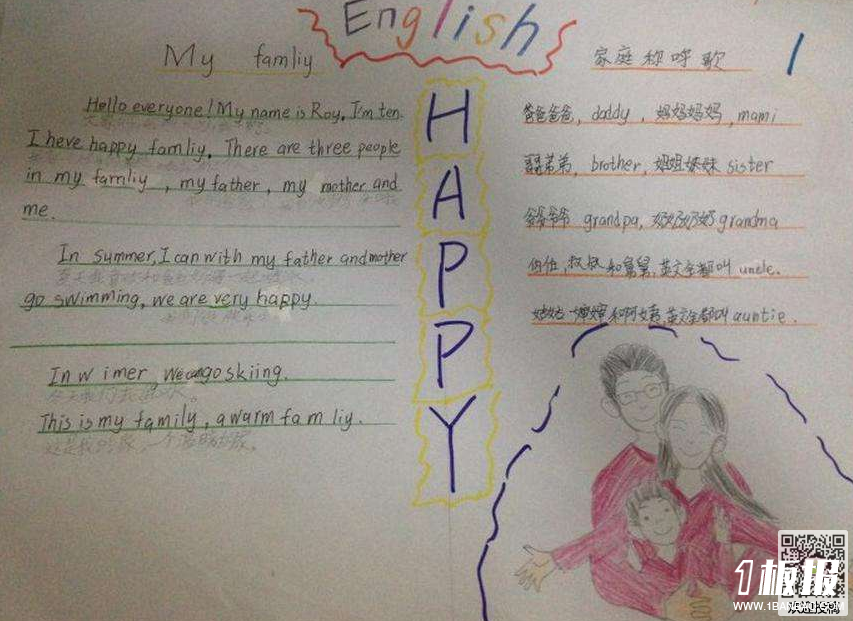 English
My famliy
Hello everyone! My name is Roy. I'm ten.
I heve happy famliy. There are three people
in my famliy, my father, my mother and
me.
In summer, I can with my father and mother
go swimming, we are very happy.
In w imer we can go skiing.
This is my family, a warm fam liy.
这是我的家,一个温暖的家。
H
A
P
P
Y
家庭称呼歌
爸爸爸爸, daddy, 妈妈妈妈, mami
哥哥弟弟, brother, 姐姐妹妹 sister
爷爷爷爷 grandpa, 奶奶奶奶 grandma
伯伯,叔叔和舅舅,英文全都叫 uncle.
姑姑婶婶和阿姨,英文全都叫 auntie.
1板报
WWW.1BANBAO.COM
欢迎投稿